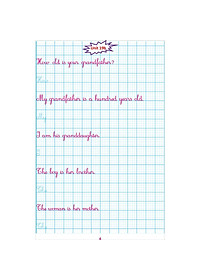 How old is your grandfather?
How
My grandfather is a hundred years old.
My
I am his granddaughter.
I
The boy is her brother.
The
The woman is her mother.
The